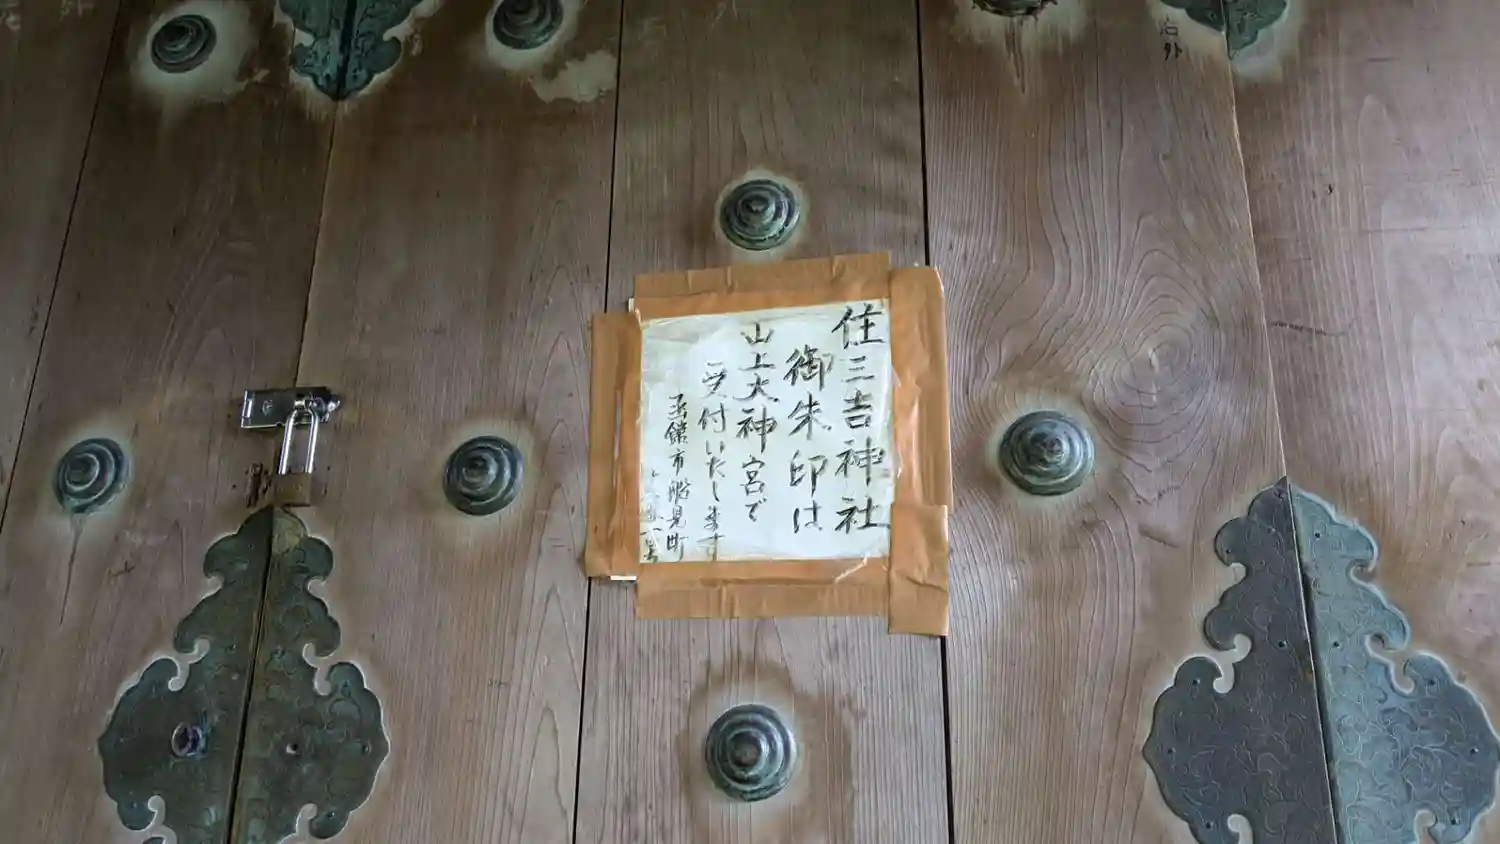 住三吉神社
御朱印は
山上大神宮で
受付いたします
函館市船見町
右外